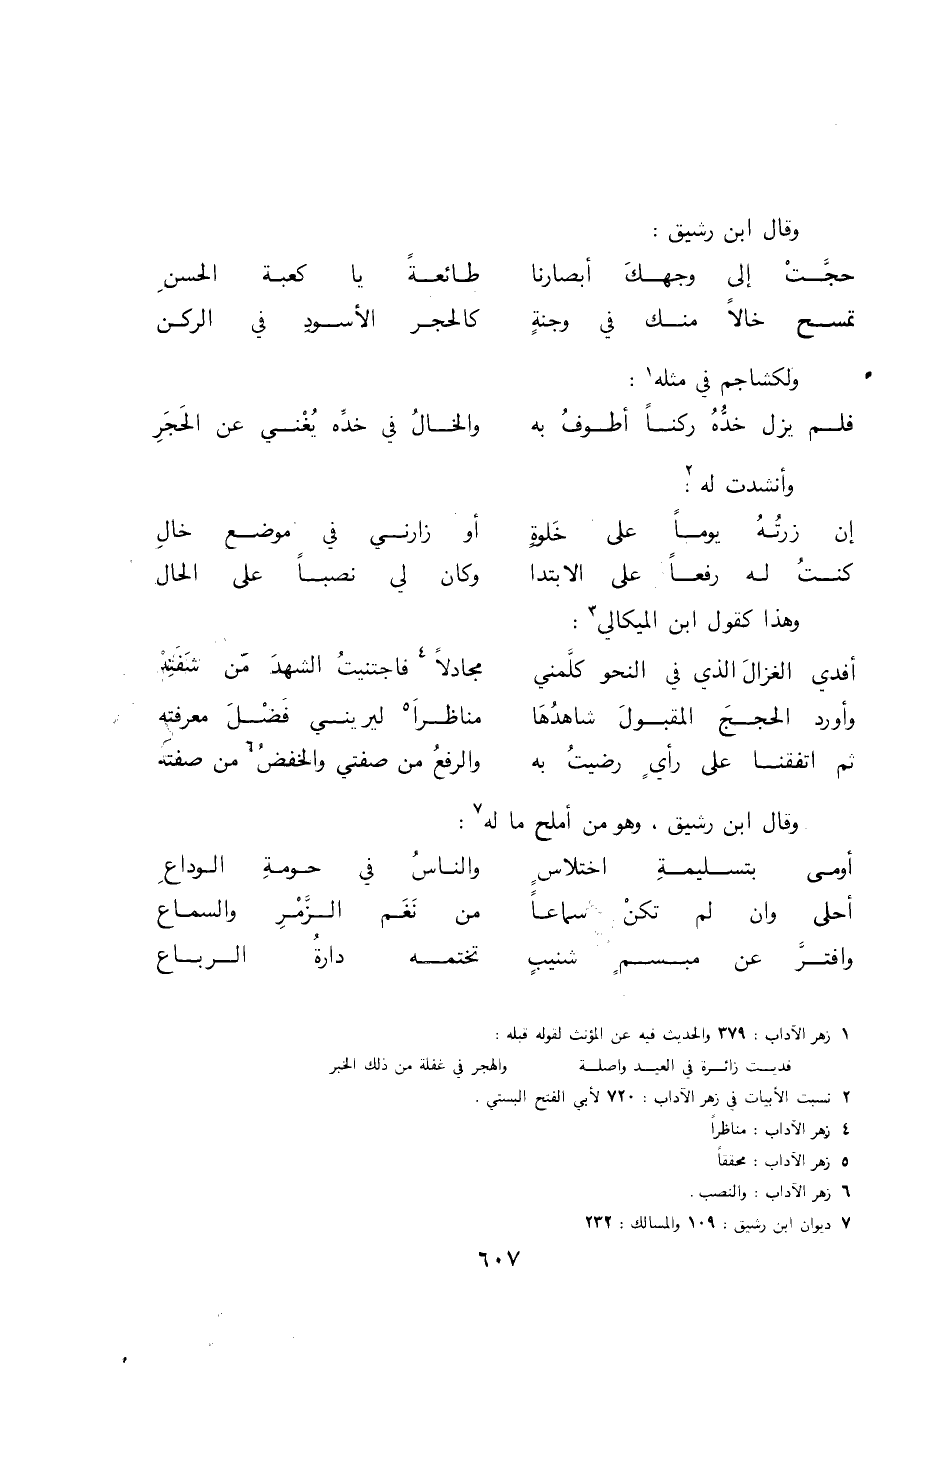 وقال ابن رشيق :
حجَّتْ إلى وجهكَ أبصارنا طائعةً يا كعبة الحسنِ
تمسح خالاً منك في وجنةٍ كالحجر الأسودِ في الركن
ولكشاجم في مثله١ :
فلم يزل خدُّهُ ركناً أطوفُ به والخالُ في خدِّه يُغْني عن الحَجَرِ
وأنشدت له٢ :
إن زرتُهُ يوماً على خَلوةٍ أو زارني في موضع خالِ
كنتُ له رفعاً على الابتدا وكان لي نصباً على الحال
وهذا كقول ابن الميكالي٣ :
أفدي الغزالَ الذي في النحو كلَّمني مجادلاً٤ فاجتنيتُ الشهدَ من شَفَتِهْ
وأورد الحججَ المقبولَ شاهدُهَا مناظراً٥ ليريني فَضْلَ معرفته
ثم اتفقنا على رأيٍ رضيتُ به والرفعُ من صفتي والخفضُ٦ من صفته
وقال ابن رشيق ، وهو من أملح ما له٧ :
أومى بتسليمةِ اختلاسٍ والناسُ في حومةِ الوداعِ
أحلى وان لم تكنْ سماعاً من نَغَم الزَّمْرِ والسماع
وافترَّ عن مبسمٍ شنيبٍ تختمه دارةُ الرباع
١ زهر الآداب : ٣٧٩ والحديث فيه عن المؤنث لقوله قبله :
فديت زائرة في العيد واصلة والهجر في غفلة من ذلك الخبر
٢ نسبت الأبيات في زهر الآداب : ٧٢٠ لأبي الفتح البستي .
٤ زهر الآداب : مناظراً
٥ زهر الآداب : محققاً
٦ زهر الآداب : والنصب .
٧ ديوان ابن رشيق : ١٠٩ والمسالك : ٢٣٢
٦٠٧